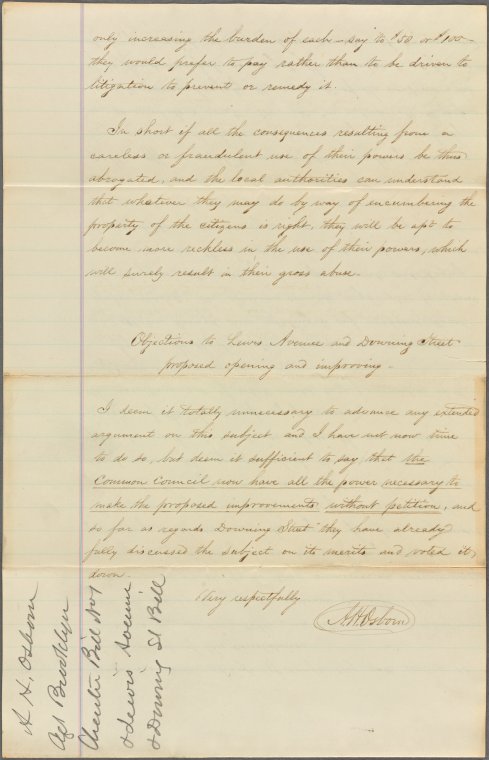 only increasing the burden of each—say to $50 or $100—
they would prefer to pay rather than to be driven to
litigation to prevent or remedy it.
In short if all the consequences resulting from a
careless or fraudulent use of their powers be thus
abrogated, and the local authorities can understand
that whatever they may do by way of encumbering the
property of the citizens is right, they will be apt to
become more reckless in the use of their powers, which
will surely result in their gross abuse.
Objections to Lewis Avenue and Downing Street
proposed opening and improving.
I deem it totally unnecessary to advance any extended
argument on this subject and I have not now time
to do so, but deem it sufficient to say, that the
Common Council now have all the power necessary to
make the proposed improvements without petition, and
so far as regards Downing Street they have already
fully discussed the subject on its merits and voted it
down.
Very respectfully
A. H. Osborn
A. H. Osborn
Agt Brooklyn
Charter Bill No 1
& Lewis Avenue
& Downing St Bill